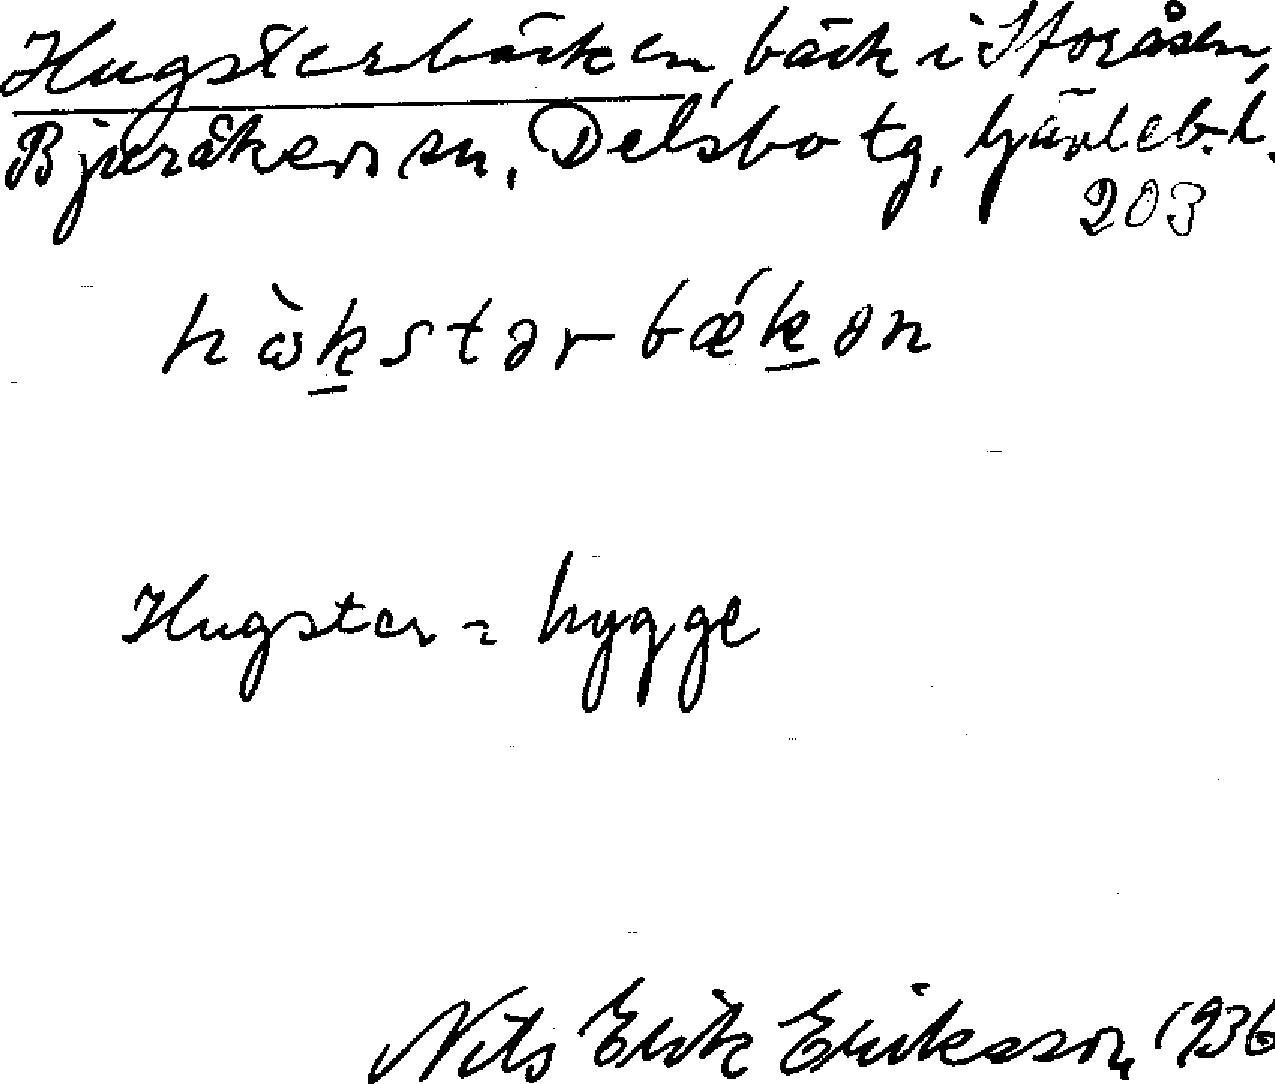 Hugsterbäcken, bäck i Storåsen,
Bjuråkers sn, Delsbo tg, Gävleb. l.
203
hὼkstər bǽkən
Hugster = hygge
Nils Erik Eriksson, 1936